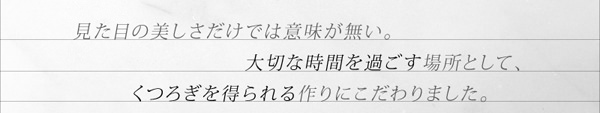 見た目の美しさだけでは意味が無い。
大切な時間を過ごす場所として、
くつろぎを得られる作りにこだわりました。